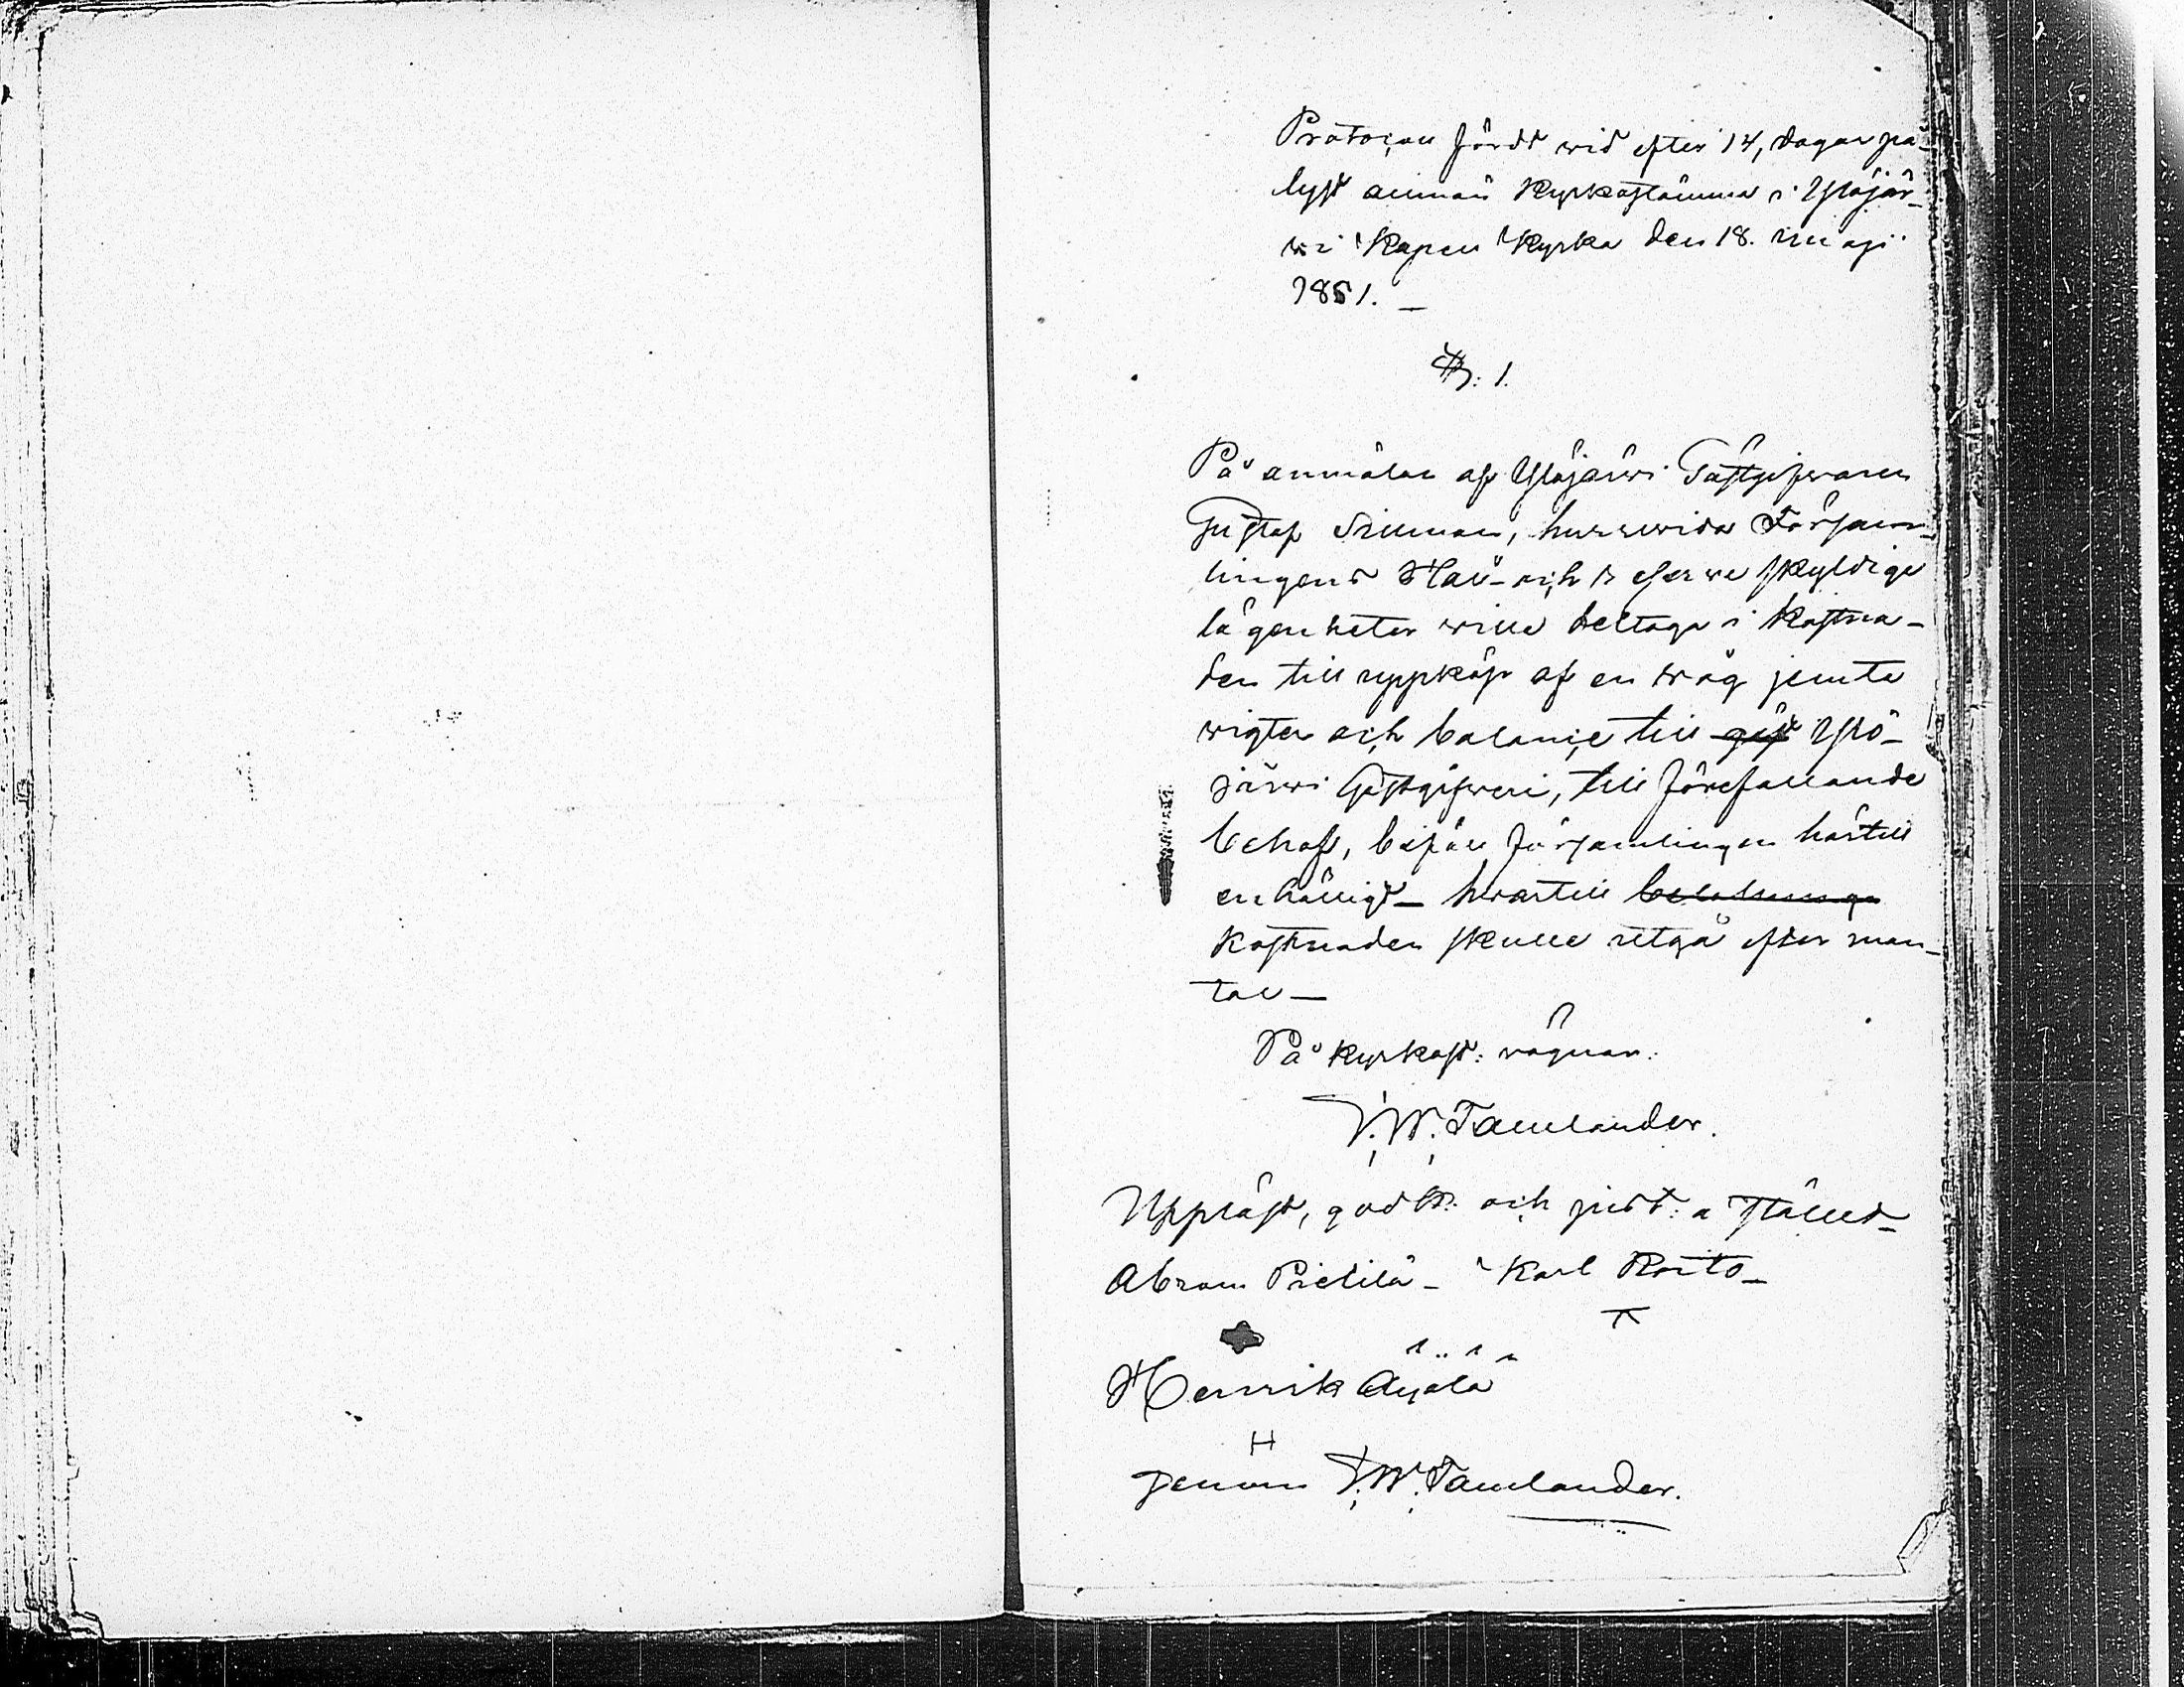 Protocoll fördt wid efter 14, dagar på-
lyst allmän Kyrkostämma i Ylöjär-
wi Kapell Kyrka den 18. maji
1851. —
§: 1.
På anmälan af Ylöjärwi Gästgifwaren
Gustaf Sillman, hurruwida Försam-
lingens Håll- och reserve skyldige
lägenheter wille deltaga i kostna-
den till uppköp af en wåg jemte
wigter och balance till gäst Ylö-
järwi Gästgifweri, till förefallande
behof, biföll församlingen härtill
enhälligt — hwartill
kostnaden skulle utgå efter man-
tal —
På kyrkost: vägnar:
F. W. Tamlander.
Uppläst, godk: och just: a ställes —
Abram Pietilä — Karl Roito —
Henrik Äyälä
H
genom F. W. Tamlander.